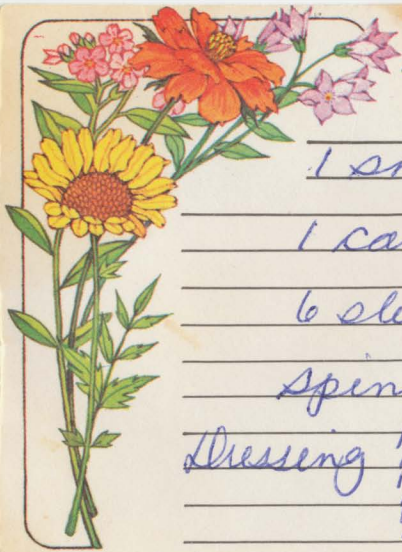 1 sm
1 ca
6 sle
Spin
Dressing